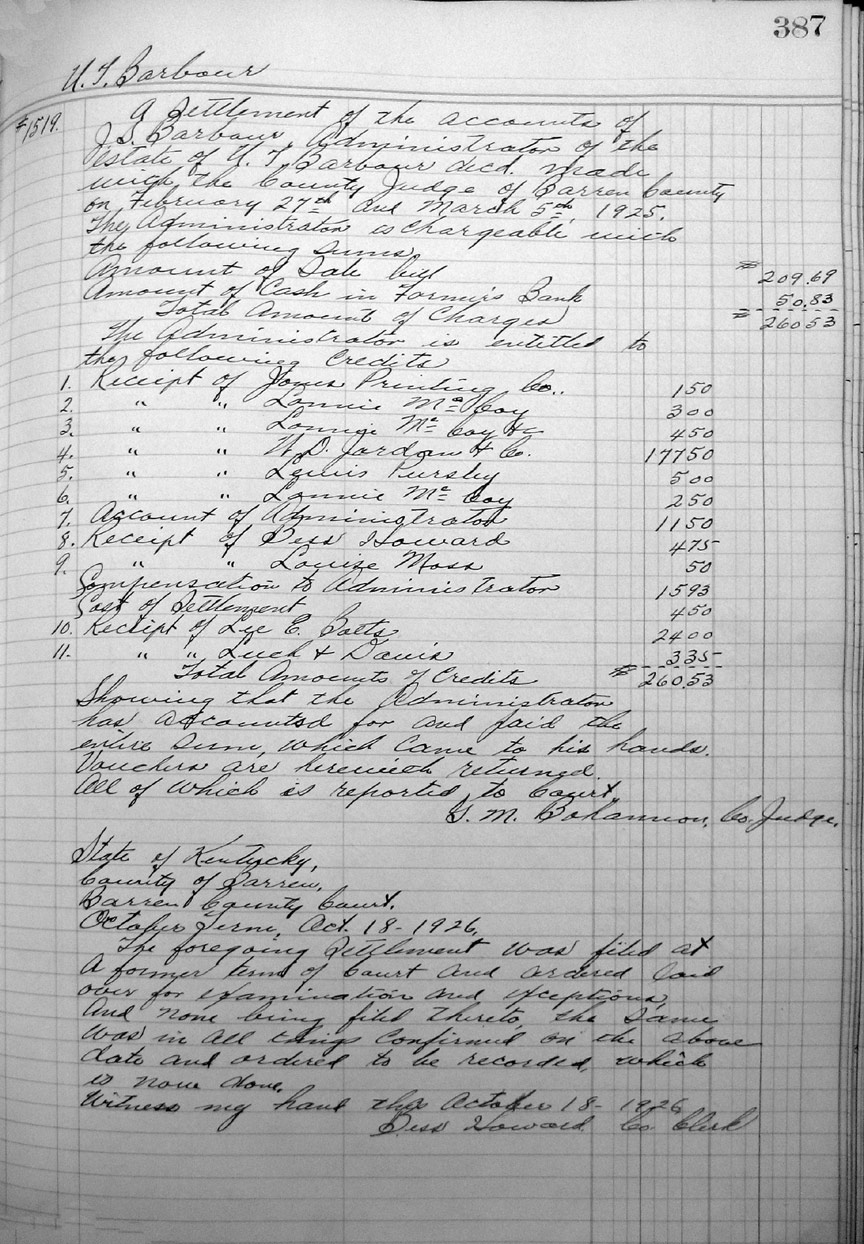 387
U. T. Barbour
#1519. A Settlement of the accounts of
J. S. Barbour, Administrator of the
estate of U. T. Barbour decd. made
with the County Judge of Barren County
on February 27th and March 5th, 1925.
The Administrator is chargeable with
the following sums
Amount of Sale bill # 209.69
Amount of Cash in Farmers Bank 50.83
Total Amount of Charges # 26053
The Administrator is entitled to
the following Credits
1. Receipt of Jones Printing Co.. 150
2. " " Lonnie Mc Coy 300
3. " " Lonnie Mc Coy &c 450
4. " " W. D. Jordan & Co. 17750
5. " " Lewis Pursley 500
6. " " Lonnie Mc Coy 250
7. Account of Administrator 1150
8. Receipt of Bess Howard 475
9. " " Louise Moss 50
Compensation to Administrator 1593
Cost of Settlement 450
10. Receipt of Lee E. Botts 2400
11. " " Luck & Davis 335
Total Amounts of Credits # 260.53
Showing that the Administrator
has accounted for and paid the
entire sum, which came to his hands.
Vouchers are herewith returned.
All of which is reported to Court,
G. M. Bohannon, Co. Judge.
State of Kentucky,
County of Barren,
Barren County Court.
October Term, Oct. 18- 1926.
The foregoing Settlement was filed at
a former term of Court and ordered laid
over for examination and exceptions,
And none being filed thereto, the same
was in all things confirmed on the above
date and ordered to be recorded, which
is now done.
Witness my hand this October 18- 1926
Bess Howard Co. Clerk